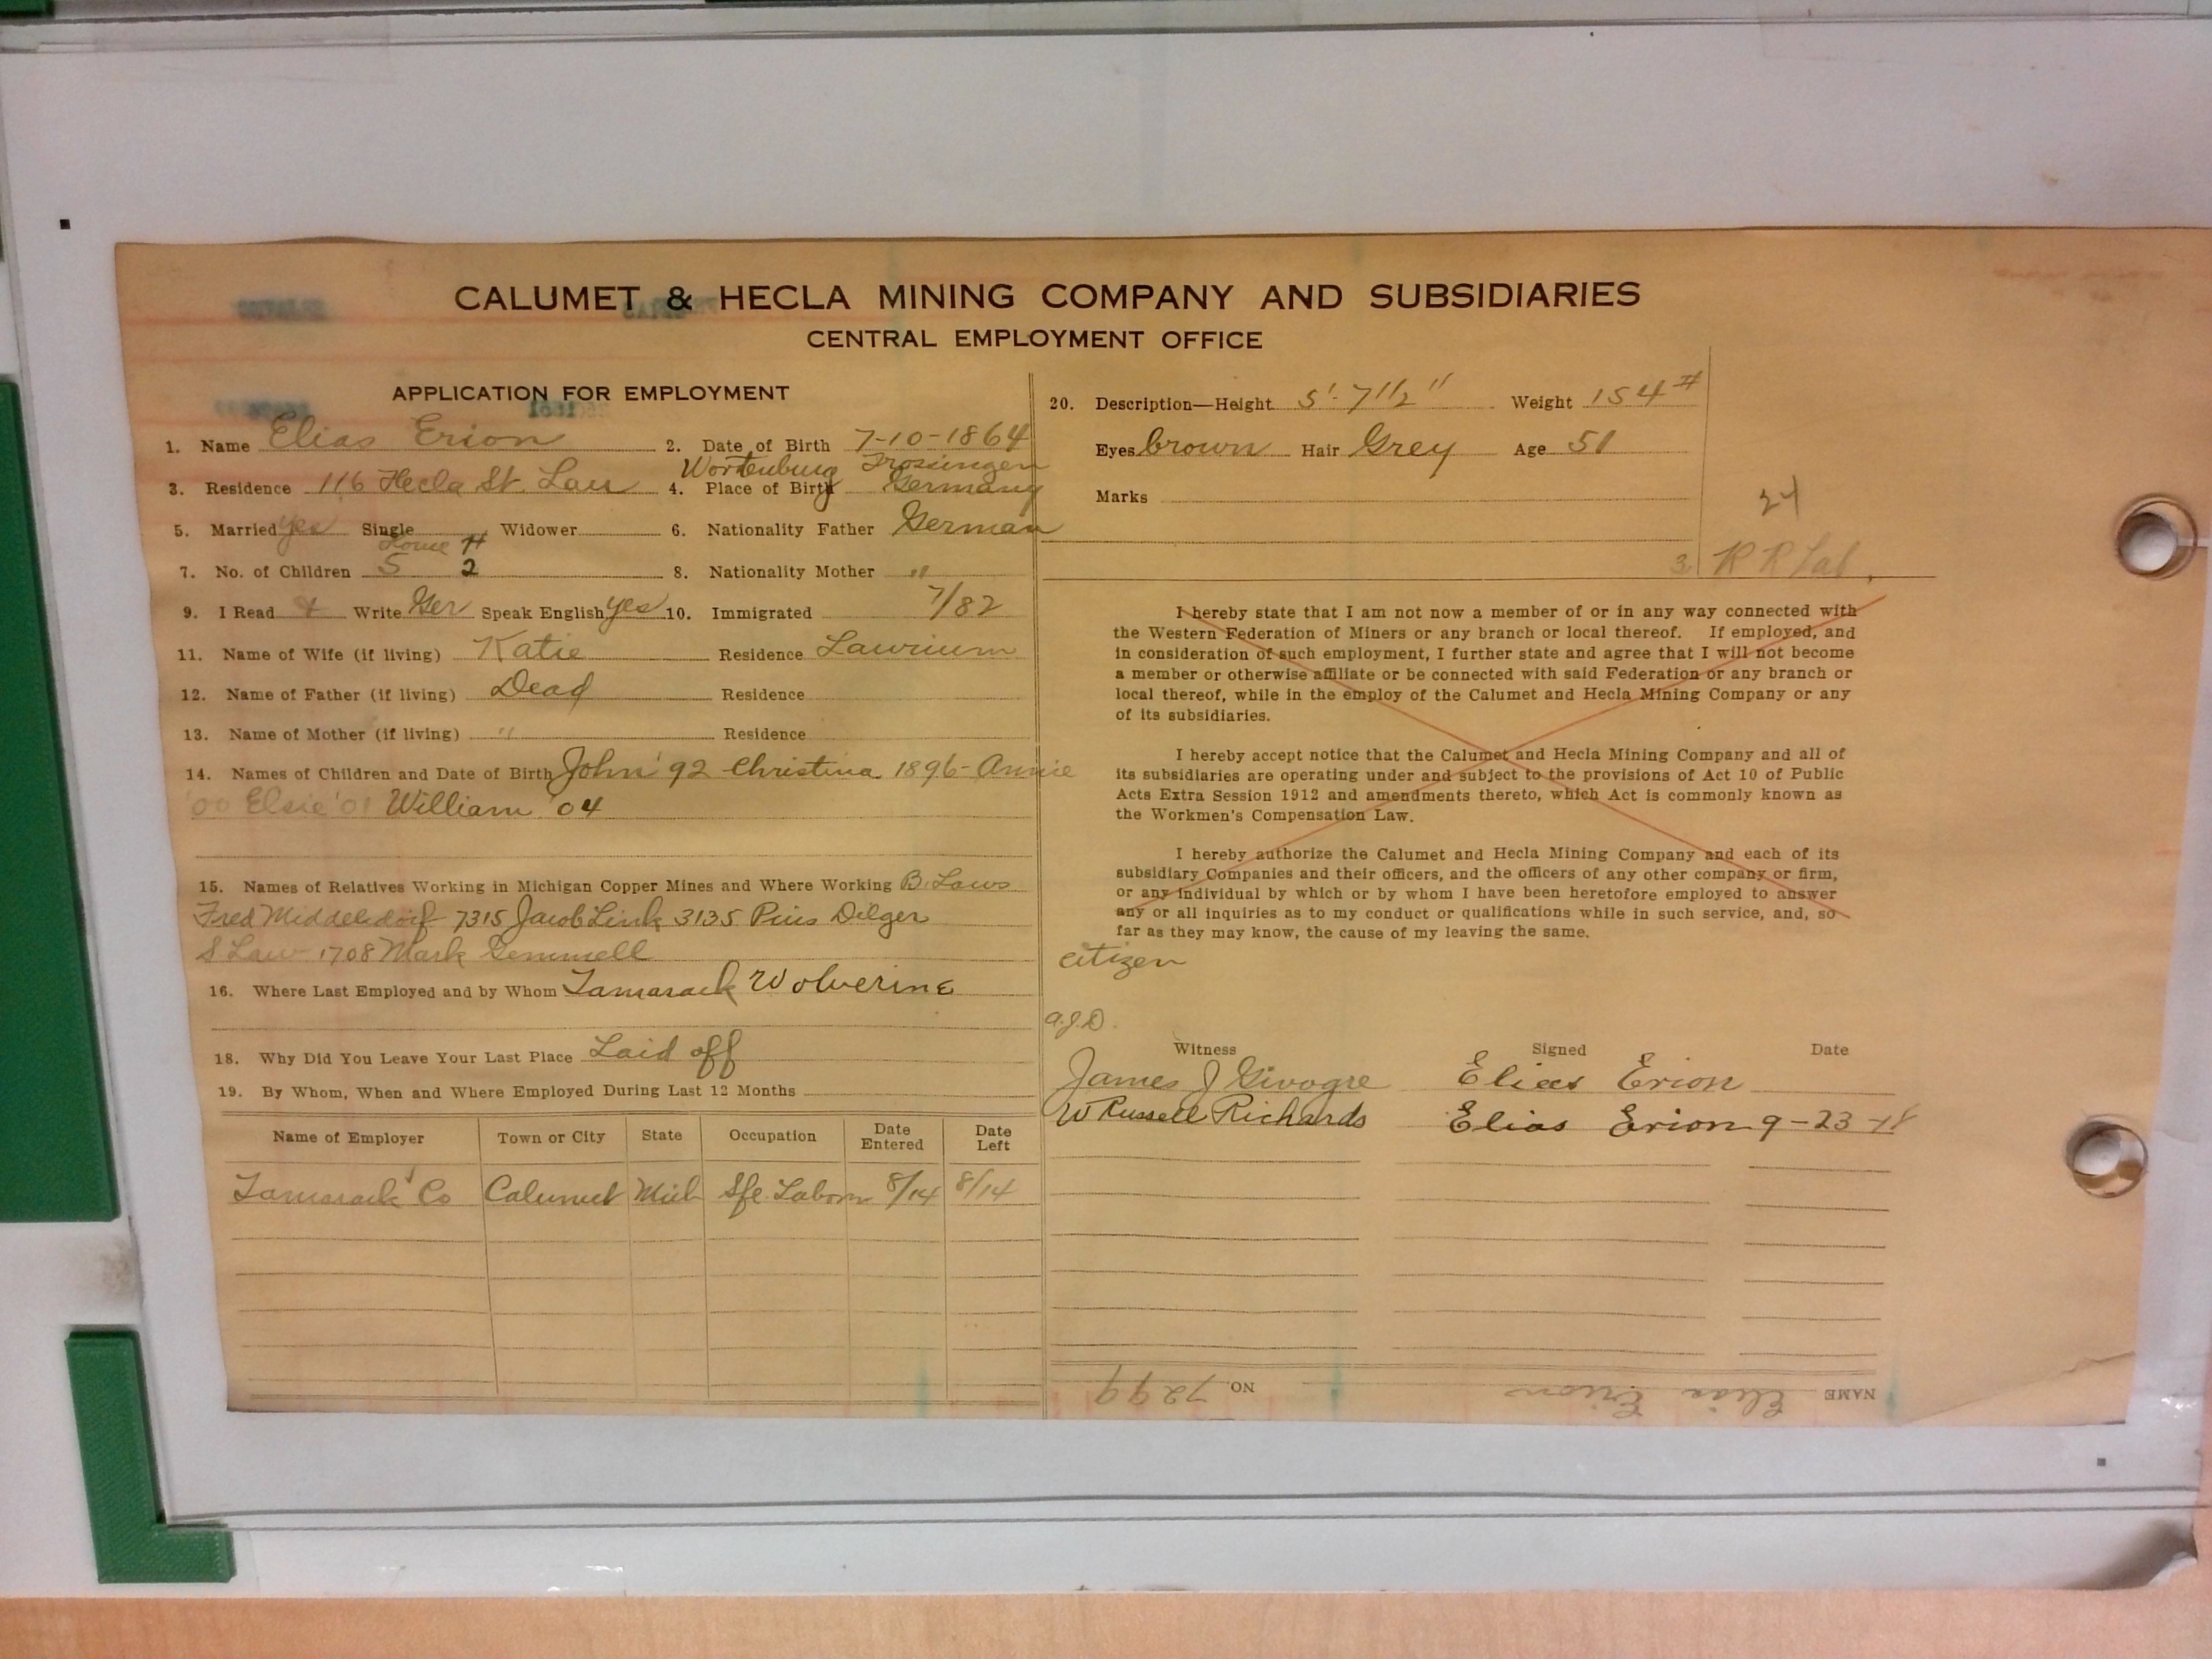 CALUMET & HECLA MINING COMPANY AND SUBSIDIARIES
CENTRAL EMPLOYMENT OFFICE
APPLICATION FOR EMPLOYMENT
1. Name Elias Erion 2. Date of Birth 7-10-1864
Wortenburg Trossingen
3. Residence 116 Hecla St. Lau 4. Place of Birth Germany
5. Married yes Single Widower 6. Nationality Father German
Home
7. No. of Children 5 2 8. Nationality Mother "
9. I Read & Write Ger Speak English yes 10. Immigrated 7/82
11. Name of Wife (if living) Katie Residence Laurium
12. Name of Father (if living) Dead Residence
13. Name of Mother (if living) " Residence
14. Names of Children and Date of Birth John '92 Christina 1896- Annie
'00 Elsie '01 William '04
15. Names of Relatives Working in Michigan Copper Mines and Where Working B. Laws
Fred Middelsdorf 7315 Jacob Link 3135 Pius Dilger
S Law 1708 Mark Gemmell
16. Where Last Employed and by Whom Tamarack Wolverine
18. Why Did You Leave Your Last Place Laid off
19. By Whom, When and Where Employed During Last 12 Months
Name of Employer Town or City State Occupation Date Entered Date Left
Tamarack Co Calumet Mich Sfe Labor 8/14 8/14
20. Description—Height 5'-7 1/2" Weight 154#
Eyes brown Hair Grey Age 51
Marks
24
3 R R Lab.
I hereby state that I am not now a member of or in any way connected with
the Western Federation of Miners or any branch or local thereof. If employed, and
in consideration of such employment, I further state and agree that I will not become
a member or otherwise affiliate or be connected with said Federation or any branch or
local thereof, while in the employ of the Calumet and Hecla Mining Company or any
of its subsidiaries.
I hereby accept notice that the Calumet and Hecla Mining Company and all of
its subsidiaries are operating under and subject to the provisions of Act 10 of Public
Acts Extra Session 1912 and amendments thereto, which Act is commonly known as
the Workmen's Compensation Law.
I hereby authorize the Calumet and Hecla Mining Company and each of its
subsidiary Companies and their officers, and the officers of any other company or firm,
or any individual by which or by whom I have been heretofore employed to answer
any or all inquiries as to my conduct or qualifications while in such service, and, so
far as they may know, the cause of my leaving the same.
citizen
a.J.D.
Witness Signed Date
James J Givogre Elias Erion
W Russell Richards Elias Erion 9-23-18
NAME Elias Erion NO. 7299